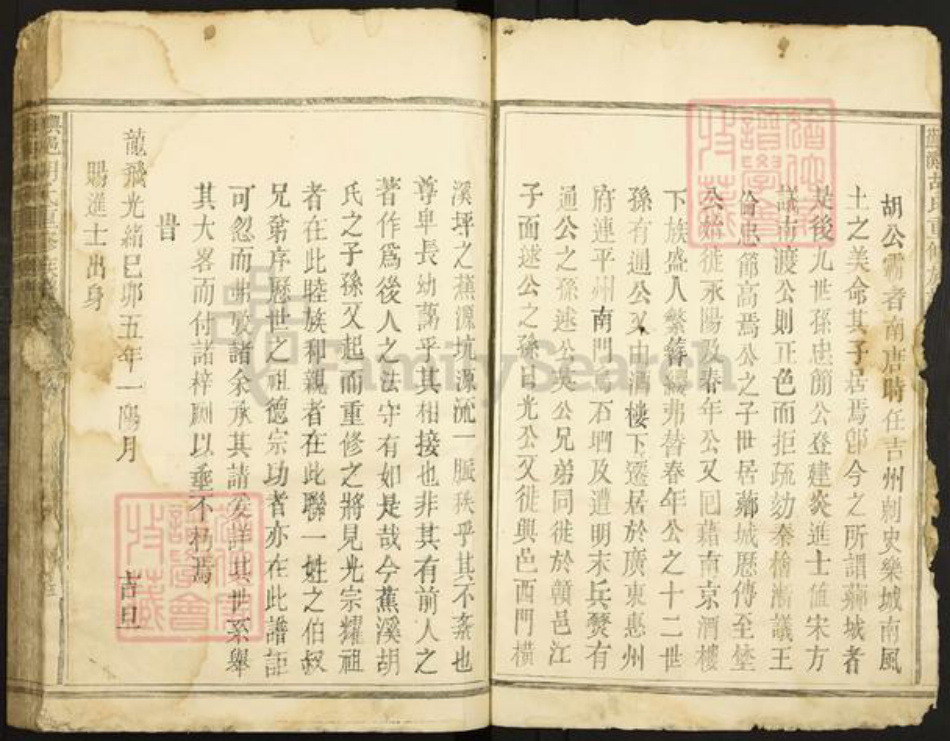 胡公霸者南唐時任吉州刺史樂城南風
土之美命其子居焉即今之所謂薌城者
是後九世孫忠簡公登建炎進士值宋方
議南渡公則正色而拒疏劾秦檜漸議王
倫忠節高焉公之子世居薌城歷傳至
公始徙永陽及春年公又囘藉南京酒樓
下族盛人繁簪纓弗替春年公之十二世
孫有通公又由酒樓下遷居於廣東惠州
府連平州南門 石 及遭明末兵燹有
通公之孫述公英公兄弟同徙於贛邑江
子面述公之孫日光公又徙興邑西門橫
溪坪之蕉源坑源流一脈秩乎其不紊也
尊卑長幼藹乎其相接也非其有前人之
著作爲後人之法守有如是哉今蕉溪胡
氏之子孫又起而重修之將見光宗耀祖
者在此睦族和親者在此聯一姓之伯叔
兄弟序歷世之祖德宗功者亦在此譜詎
可忽而弗 諸余承其請爰詳其世系舉
其大畧而付諸梓劂以垂不朽焉
旹
龍飛光緒己卯五年一陽月 吉旦
賜進士出身
胡氏重修族
FamilySearch